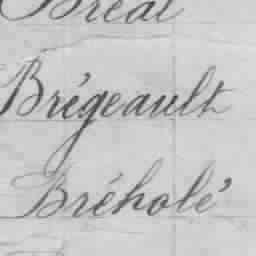 Bréal
Brégeault
Bréholé